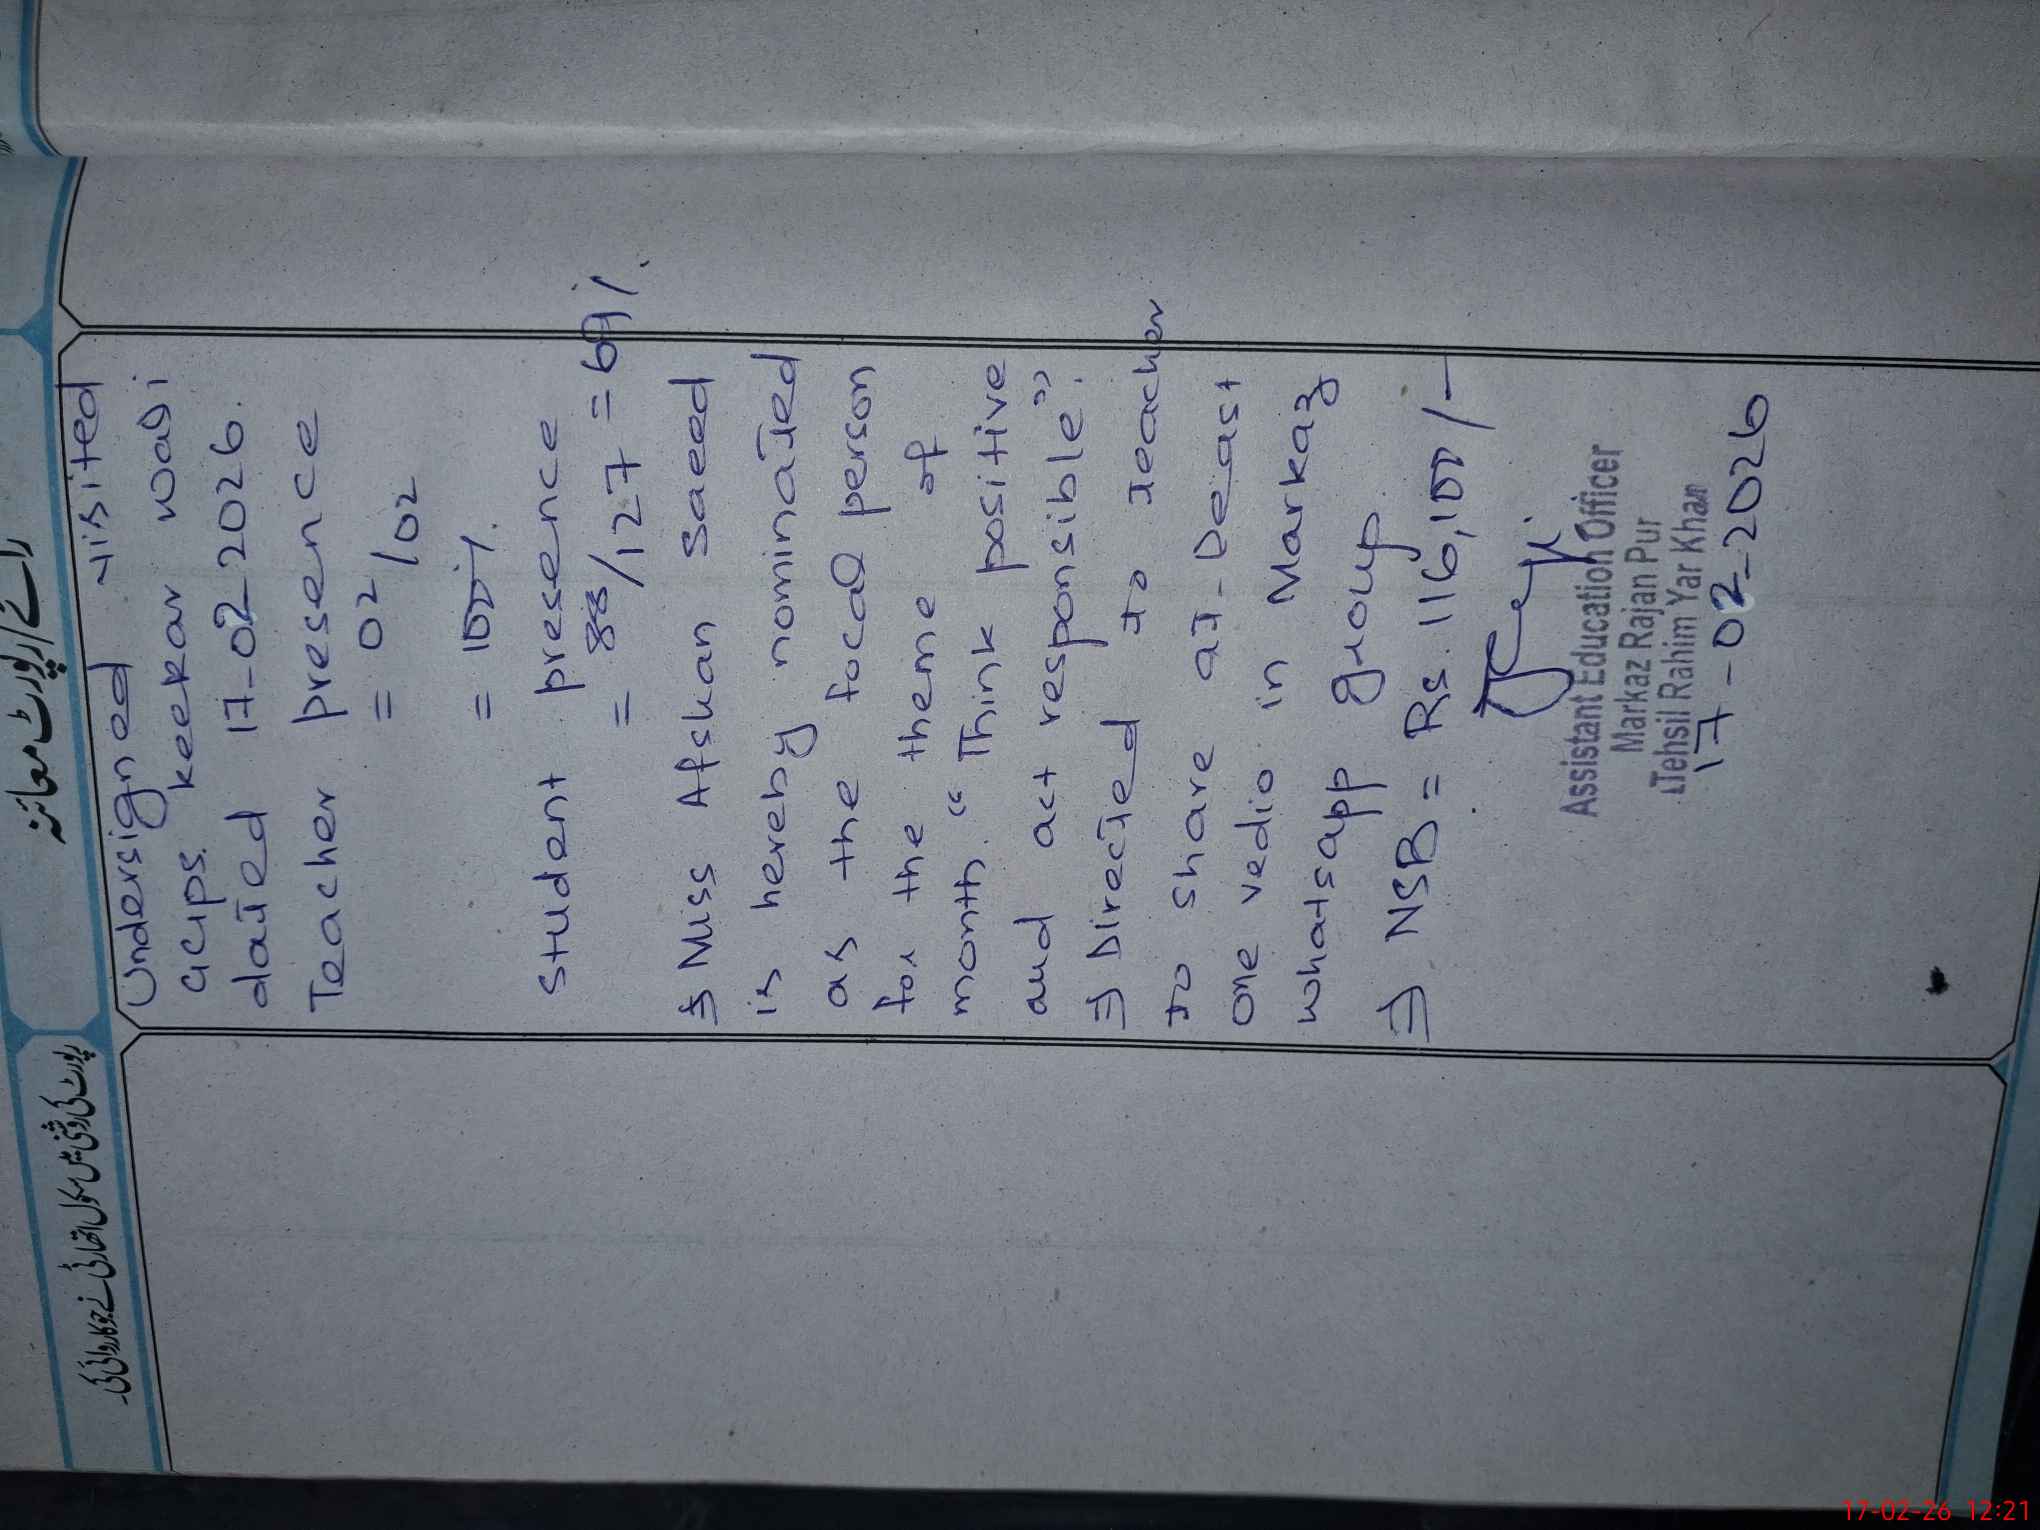 رائے/رپورٹ معائنہ
Undersigned visited
GGPS. keekar wali
dated 17-02-2026.
Teacher presence
= 02/02
= 100%.
Student presence
= 88/127 = 69%.
⇒ Miss Afshan Saeed
is hereby nominated
as the focal person
for the theme of
month. "Think positive
and act responsible".
⇒ Directed to teacher
to share at-least
one vedio in Markaz
whatsapp group.
⇒ NSB = Rs. 116,100/-
Assistant Education Officer
Markaz Rajan Pur
Tehsil Rahim Yar Khan
17-02-2026
رپورٹ کی روشنی میں سکول اتھارٹی نے جو کاروائی کی۔
17-02-26 12:21